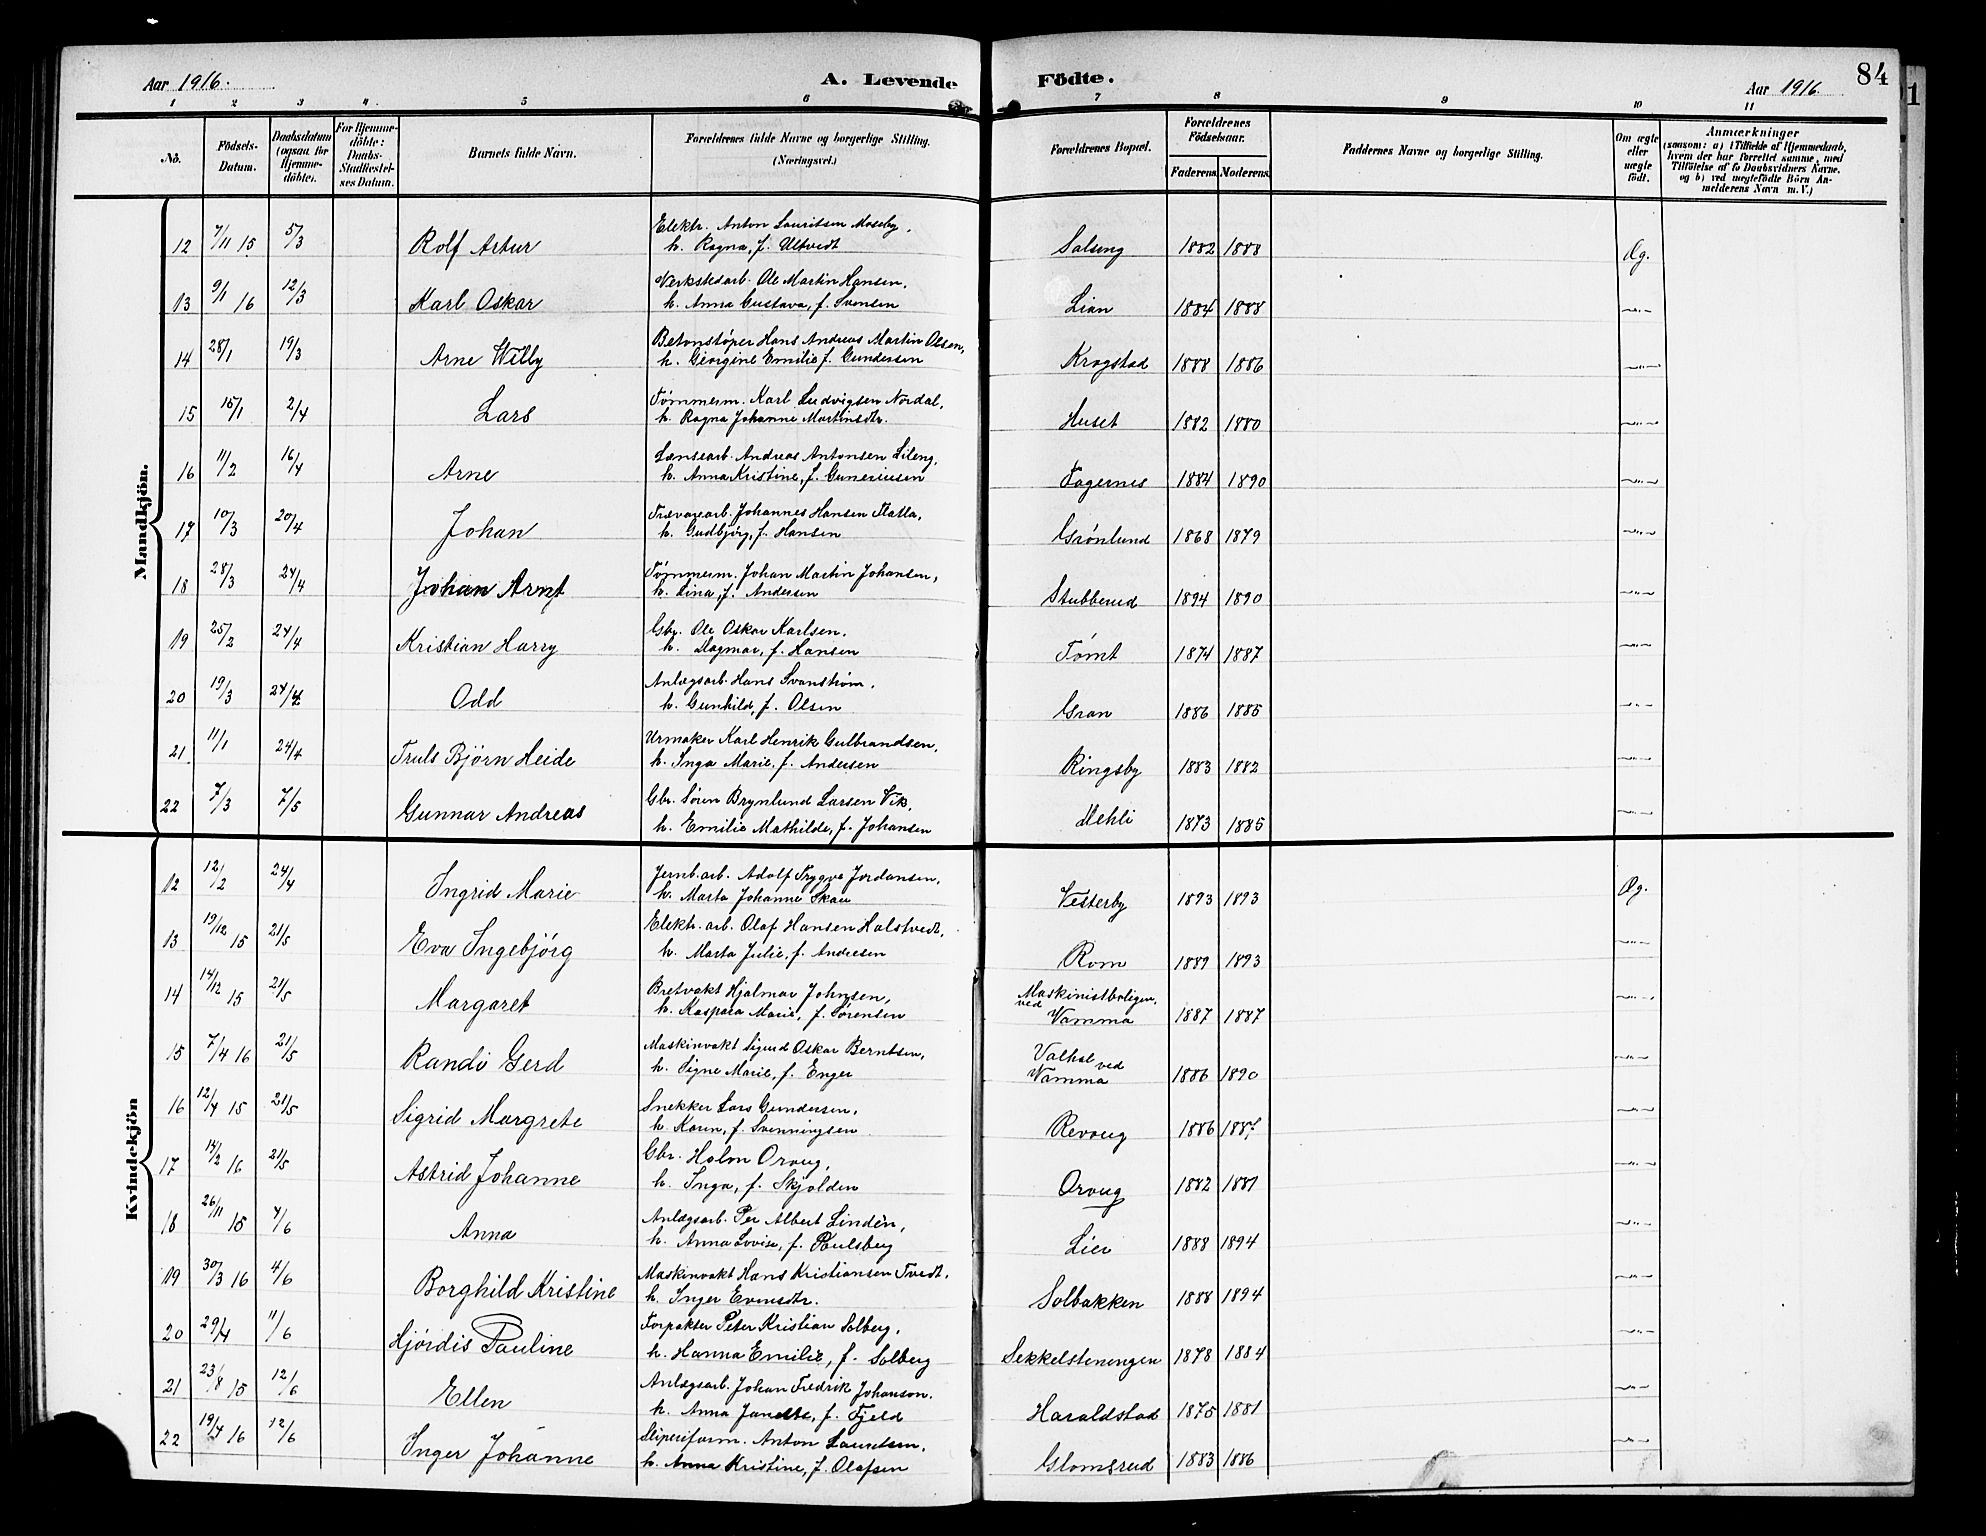 Aar 1916.
A. Levende Födte.
Aar 1916
84
1 2 3 4 5 6 7 8 9 10 11
No.
Födsels-Datum.
Daabsdatum (ogsaa for Hjemme-döbte).
For Hjemme-döbte: Daabs-Stadfæstel-ses Datum.
Barnets fulde Navn.
Forældrenes fulde Navne og borgerlige Stilling.
(Næringsvei.)
Forældrenes Bopæl.
Forældrenes Födselsaar.
Faderens. Moderens.
Faddernes Navne og borgerlige Stilling.
Om ægte eller uægte født.
Anmærkninger
(saasom: a) i Tilfælde af Hjemmedaab, hvem der har forrettet samme, med Tilföielse af to Daabsvidners Navne, og b) ved uægtefödte Börn An-melderens Navn m. V.)
Mandkjön.
12 7/11 15 5/3 Rolf Artur Elektr. Anton Lauritsen Moseby, h. Ragna, f. Ultvedt Solseng 1882 1888 Æg.
13 9/1 16 12/3 Karl Oskar Verkstedarb. Ole Martin Hansen, h. Anna Gustava, f. Svensen Lian 1884 1888 —"—
14 28/1 19/3 Arne Willy Betonstøper Hans Andreas Martin Olsen, h. Georgine Emilie f. Gundersen Krogstad 1888 1886 —"—
15 16/1 2/4 Lars Tømmerm. Karl Ludvigsen Nordal, h. Ragna Johanne Martinsdtr. Huset 1882 1880 —"—
16 11/2 16/4 Arne Lænsearb. Andreas Antonsen Lileng, h. Anna Kristine, f. Guneriusen Fagernes 1884 1890 —"—
17 10/3 20/4 Johan Trævarearb. Johannes Hansen Flatla, h. Gudbjørg, f. Hansen Grønlund 1868 1879 —"—
18 28/3 24/4 Johan Arnt Tømmerm. Johan Martin Johansen, h. Lina, f. Andersen Stubberud 1894 1890 —"—
19 25/2 24/4 Kristian Harry Gbr. Ole Oskar Karlsen, h. Dagmar, f. Hansen Tømt 1874 1887 —"—
20 19/3 24/4 Odd Anlægsarb. Hans Svanstrøm, h. Gunhild, f. Olsen Gran 1886 1885 —"—
21 11/1 24/4 Truls Bjørn Heide Urmaker Karl Henrik Gulbrandsen, h. Inga Marie, f. Andersen Ringsby 1883 1882 —"—
22 7/3 7/5 Gunnar Andreas Gbr. Søren Brynlund Larsen Vik, h. Emilie Mathilde, f. Johansen Mehli 1873 1885 —"—
Kvindekjön
12 12/2 24/4 Ingrid Marie Jernb.arb. Adolf Trygve Jordansen, h. Marta Johanne Skau Vesterby 1893 1893 Æg.
13 19/12 15 21/5 Eva Ingebjørg Elektr. arb. Olaf Hansen Halstvedt, h. Marta Julie, f. Andresen Rom 1889 1893 —"—
14 14/12 15 21/5 Margaret Bretvakt Hjalmar Johnsen, h. Kaspara Marie, f. Sørensen Maskinistboligen, ved Vamma 1887 1887 —"—
15 7/4 16 21/5 Randi Gerd Maskinvakt Sigurd Oskar Berntsen, h. Signe Marie, f. Enger Valhal ved Vamma 1886 1890 —"—
16 12/4 15 21/5 Sigrid Margrete Snekker Lars Gundersen, h. Karen, f. Svenningsen Revaug 1886 —"—
17 14/2 16 21/5 Astrid Johanne Gbr. Holm Oraug, h. Inga, f. Skjolden Oraug 1882 1881 —"—
18 26/11 15 4/6 Anna Anlægsarb. Per Albert Lindén, h. Anna Lovise, f. Paulsberg Lier 1888 1894 —"—
19 30/3 16 4/6 Borghild Kristine Maskinvakt Hans Kristiansen Tvedt, h. Inger Evensdtr. Solbakken 1888 1894 —"—
20 29/4 11/6 Hjørdis Pauline Forpakter Peter Kristian Solberg, h. Hanna Emilie, f. Solberg Sekkelsteningen 1878 1884 —"—
21 23/8 15 12/6 Ellen Anlægsarb. Johan Fredrik Johanson, h. Anna Janette, f. Fjeld Haraldstad 1875 1881 —"—
22 19/4 16 12/6 Inger Johanne Sliperiform. Anton Lauritsen, h. Anna Kristine, f. Olafsen Glomsrud 1883 1886 —"—